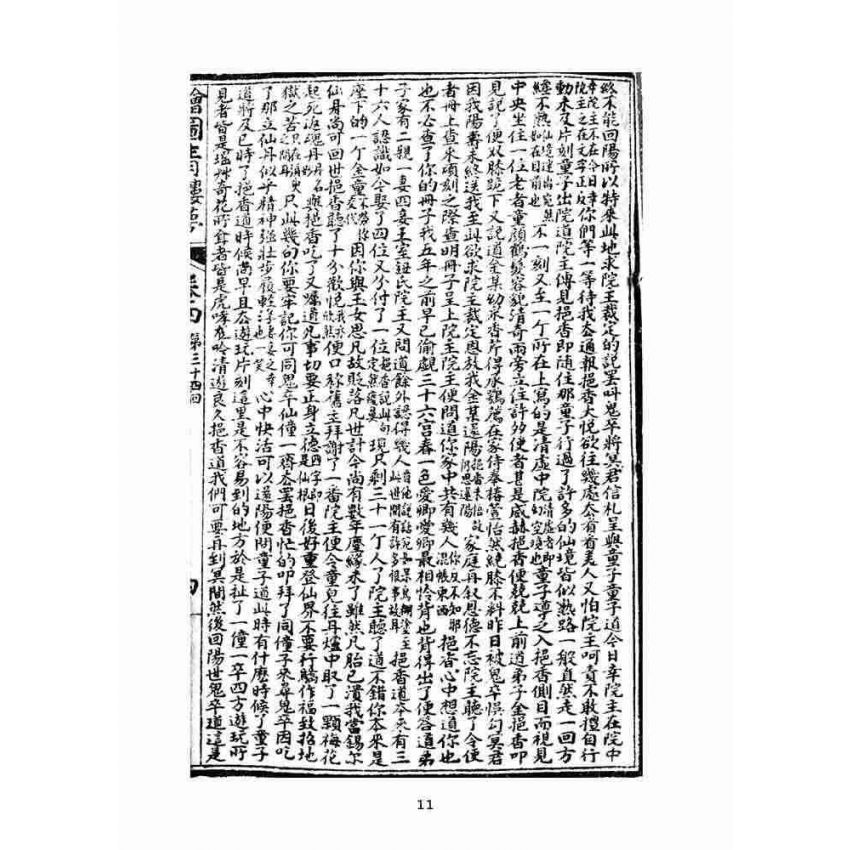 終不能回陽所以特來此地求院王裁定的說罷叫鬼卒將冥君信札呈與童子童子道今日幸院主在院中
你們等一等待我去通報挹香大悅欲往幾處去看看美人又怕院主呵責不敢擅自行
動未及片刻童子出院道院主傳見挹香即隨住那童子行過了許多的仙境皆似熟路一般直然走一回方
不一刻又至一个所在上寫的是清虛中院童子導之入挹香側目而視見
中央坐住一位老者童顏鶴髮容貌清奇兩旁立住許多使者甚是威赫挹香便兢兢上前道弟子金挹香叩
見說了便双膝跪下又說道金某幼采香芹得承鶚薦在家侍奉椿萱怡然繞膝不料昨日被鬼卒悞勾冥君
因我陽壽未終送我至此欲求院主裁定恩放我金某還陽家庭再叙恩德不忘院主聽了令使
者冊上查来頃刻之際查明冊子呈上院主院主便問道你家中共有幾人挹香心中想道你也
也不必查了你的冊子我五年之前早已偷覷三十六宮春一色愛卿愛卿最相怜背也背得出了便答道弟
子家有二親一妻四妾王室鈕氏院主又問道餘外認得幾人挹香道本來有三
十六人認識如今娶了四位又分付了一位現只剩三十一个人了院主聽了道不錯你本來是
座下的一个金童因你與玉女思凡故貶落凡世計今尚有數年塵緣未了雖然凡胎已濆我當錫尔
仙身尚可回世挹香聽了十分歡悅便口稱舊主拜謝了一番院主便令童兒往丹爐中取了一顆梅花
起死返魂丹與挹香吃了又囑道凡事切要正身立德日後好重登仙界不要行驕作福致招地
獄之苦只此幾句你要牢記你可同鬼卒仙僮一齊去罷挹香忙的叩拜了同僮子來尋鬼卒因吃
了那立仙丹似乎精神強壯步履輕心中快活可以還陽便問童子道此時有什麼時候了童子
道將及巳時了挹香道時候尚早且去遊玩片刻這里是不容易到的地方於是扯了一僮一卒四方遊玩所
見者皆是瑤草奇花所聞者皆是虎哮猿吟清遊良久挹香道我們可要再到冥間然後回陽世鬼卒道這是
繪圖青樓夢 卷四 第三十四回
11